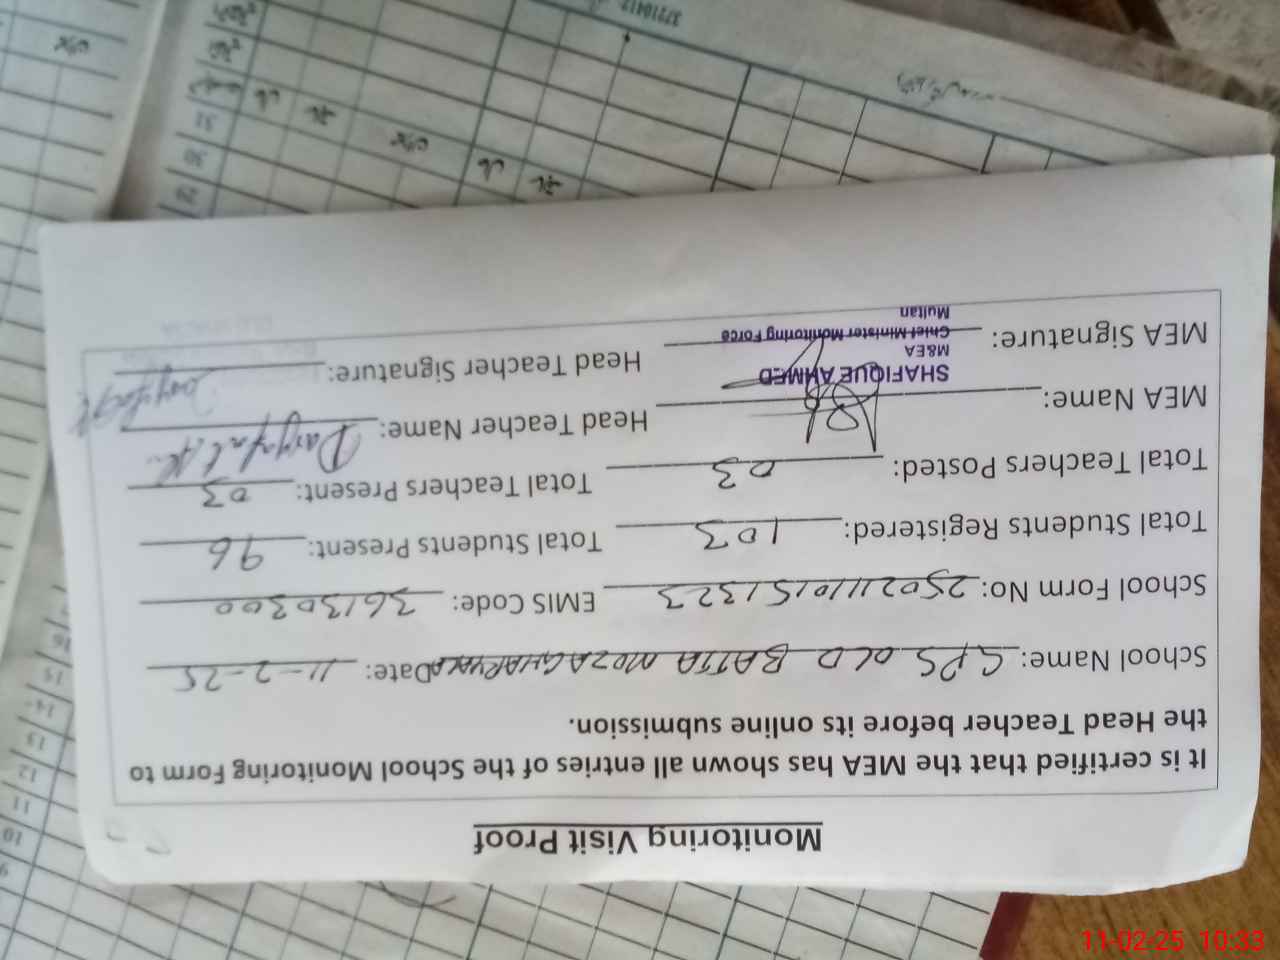 Monitoring Visit Proof
It is certified that the MEA has shown all entries of the School Monitoring Form to
the Head Teacher before its online submission.
School Name: GPS OLD BATTA MOZA Date: 11-2-25
School Form No: 25021110151323 EMIS Code: 36130300
Total Students Registered: 103 Total Students Present: 96
Total Teachers Posted: 03 Total Teachers Present: 03
MEA Name: Head Teacher Name:
SHAFIQUE AHMED
M&EA
MEA Signature: Head Teacher Signature:
Chief Minister Monitoring Force
Multan
29
30
31
9
10
11
12
13
14
15
16
11-02-25 10:33